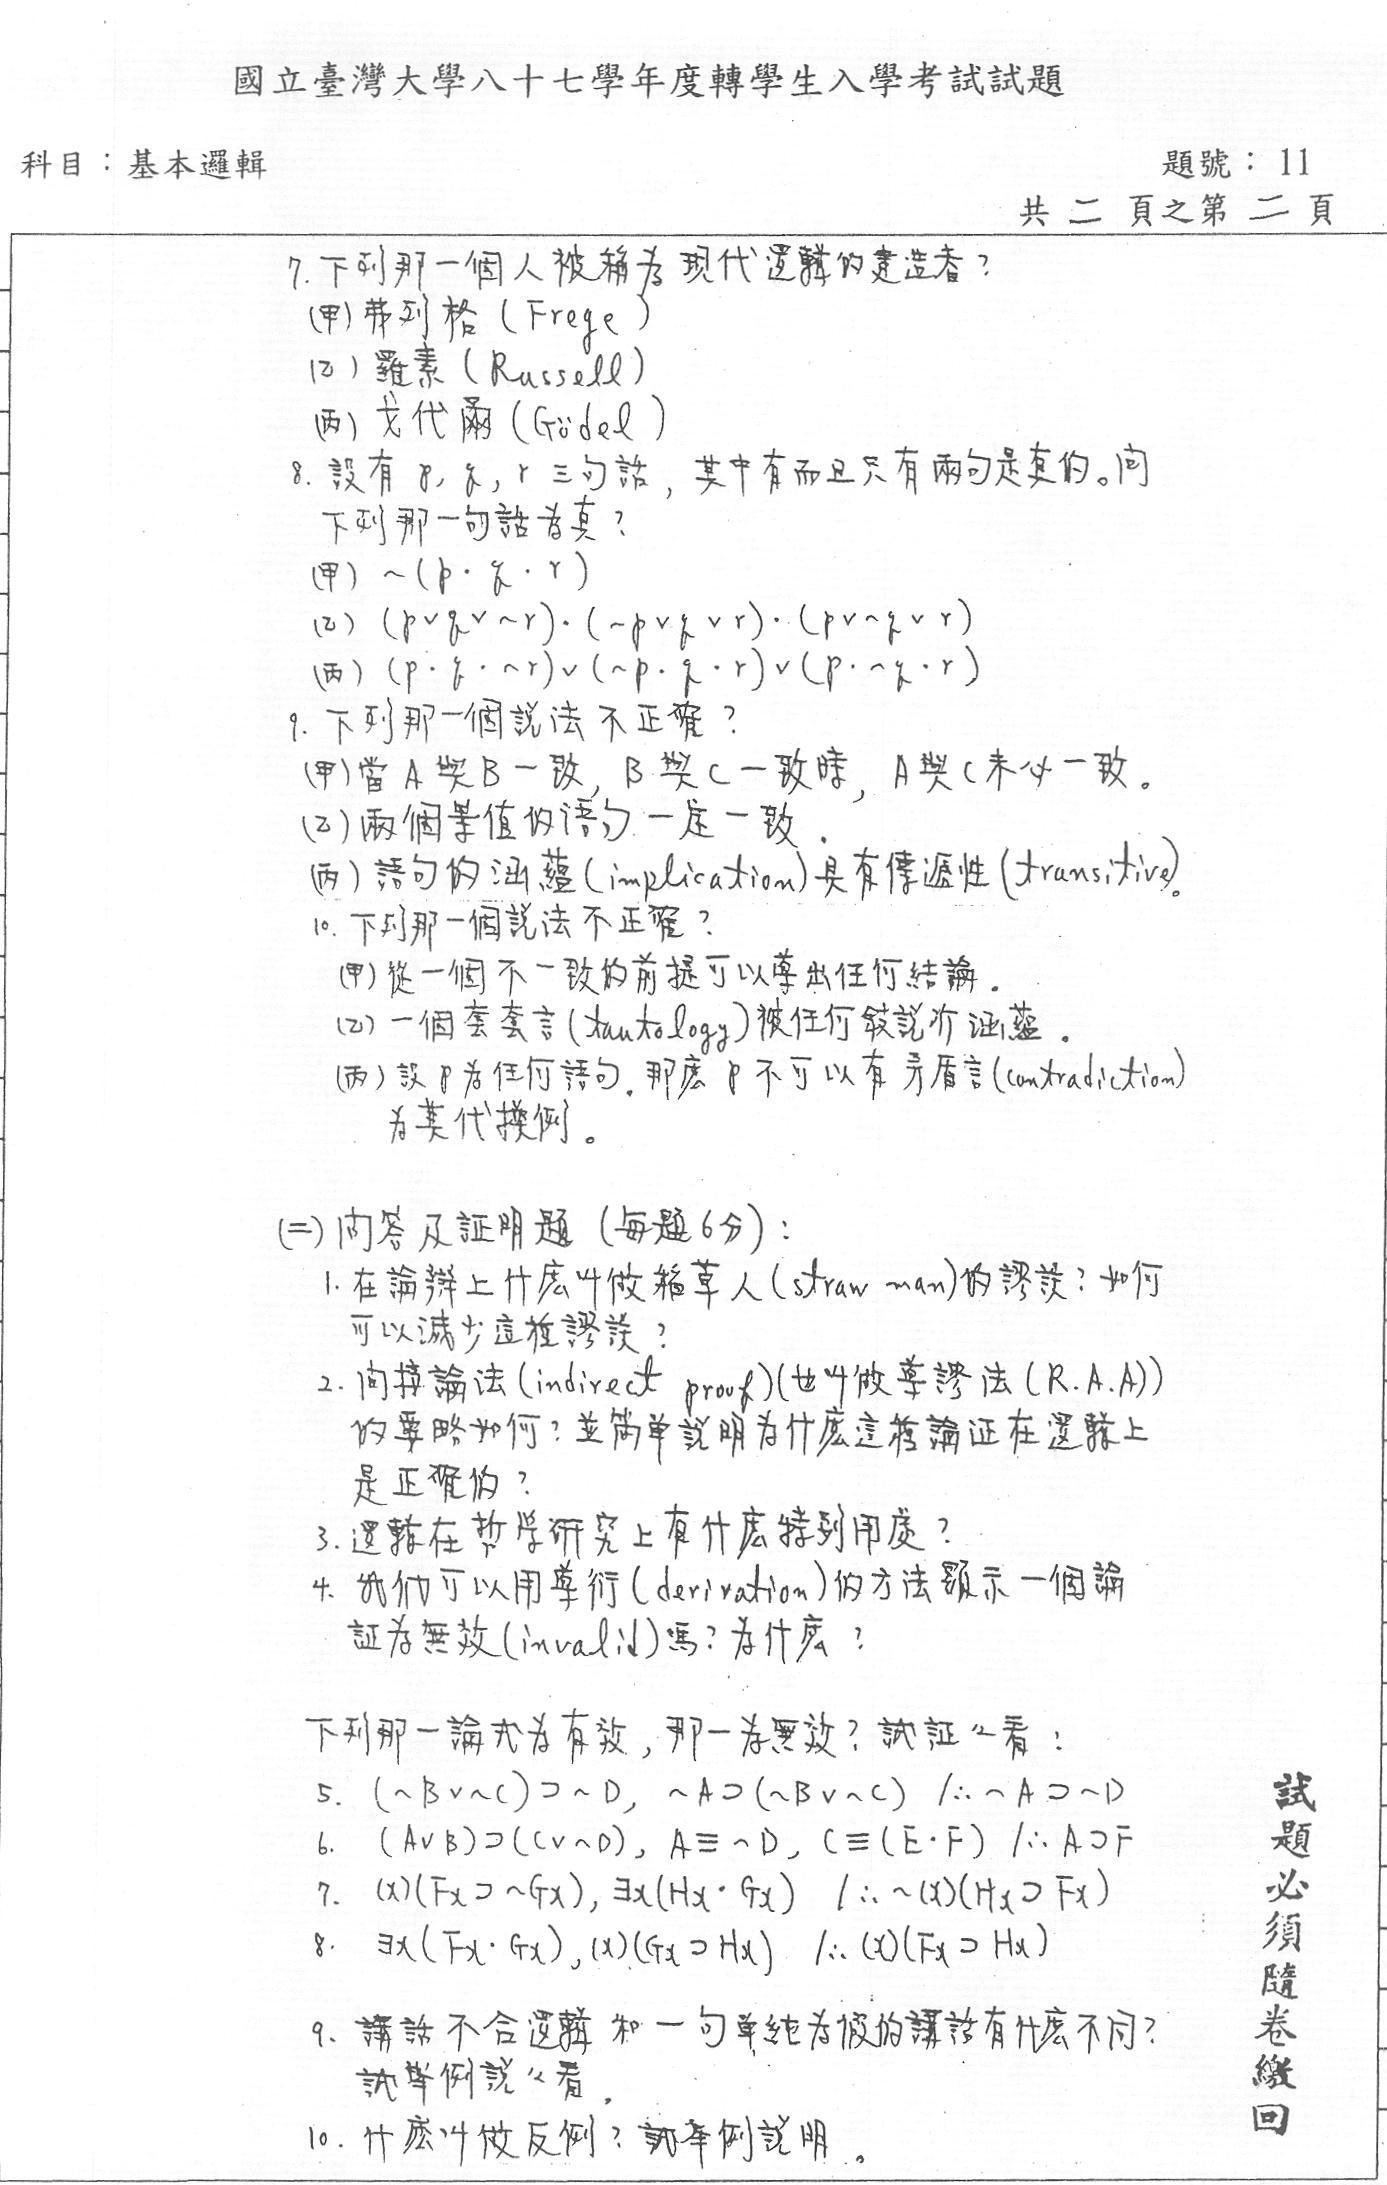 國立臺灣大學八十七學年度轉學生入學考試試題
科目：基本邏輯
題號：11
共二頁之第二頁
7. 下列那一個人被稱為現代邏輯的建造者？
(甲) 弗列格 (Frege)
(乙) 羅素 (Russell)
(丙) 戈代爾 (Gödel)
8. 設有 p, q, r 三句話，其中有而且只有兩句是真的。問
下列那一句話為真？
(甲) ~(p·q·r)
(乙) (p∨q∨~r)·(~p∨q∨r)·(p∨~q∨r)
(丙) (p·q·~r)∨(~p·q·r)∨(p·~q·r)
9. 下列那一個說法不正確？
(甲) 當A與B一致，B與C一致時，A與C未必一致。
(乙) 兩個等值的语句一定一致.
(丙) 語句的涵蘊(implication)具有傳遞性(transitive)。
10. 下列那一個說法不正確？
(甲) 從一個不一致的前提可以導出任何結論。
(乙) 一個套套言(tautology)被任何敍說所涵蘊。
(丙) 設p為任何語句. 那麽p不可以有矛盾言(contradiction)
為其代換例。
(二) 问答及証明題 (每題6分)：
1. 在論辯上什麽叫做稻草人(straw man)的謬誤？如何
可以減少這種謬誤？
2. 间接論法(indirect proof)(也叫做導謬法(R.A.A))
的要略如何？並简单說明為什麽這種論証在邏輯上
是正確的？
3. 邏輯在哲学研究上有什麽特别用處？
4. 我们可以用導衍(derivation)的方法顯示一個論
証為無效(invalid)嗎？為什麽？
下列那一論式為有效，那一為無效？試証々看：
5. (~B∨~C)⊃~D, ~A⊃(~B∨~C) /∴~A⊃~D
6. (A∨B)⊃(C∨~D), A≡~D, C≡(E·F) /∴A⊃F
7. (x)(Fx⊃~Gx), ∃x(Hx·Gx) /∴~(x)(Hx⊃Fx)
8. ∃x(Fx·Gx), (x)(Gx⊃Hx) /∴(x)(Fx⊃Hx)
9. 講話不合邏輯和一句单純為假的講話有什麽不同？
試举例說々看.
10. 什麽叫做反例？試举例說明。
試題必須隨卷繳回